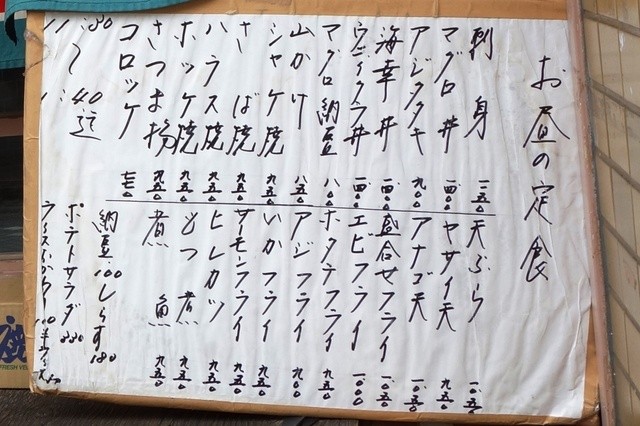 お昼の定食
刺身 一二五〇
マグロ丼 一四〇〇
アジタタキ 九〇〇
海幸丼 一四〇〇
ウニイクラ丼 一四〇〇
マグロ納豆 八〇〇
山かけ 八五〇
シャケ焼 九五〇
さば焼 九五〇
ハラス焼 九五〇
ホッケ焼 九五〇
さつま揚 九五〇
コロッケ 七五〇
11:30
〜
1:40迄
天ぷら 一〇五〇
ヤサイ天 九五〇
アナゴ天 一〇五〇
盛合せフライ 一〇五〇
エビフライ 一〇〇〇
ホタテフライ 九五〇
アジフライ 九〇〇
いかフライ 九五〇
サーモンフライ 九五〇
ヒレカツ 九五〇
もつ煮 九五〇
煮魚 九五〇
納豆100 しらす180
ポテトサラダ 330
FRESH VE